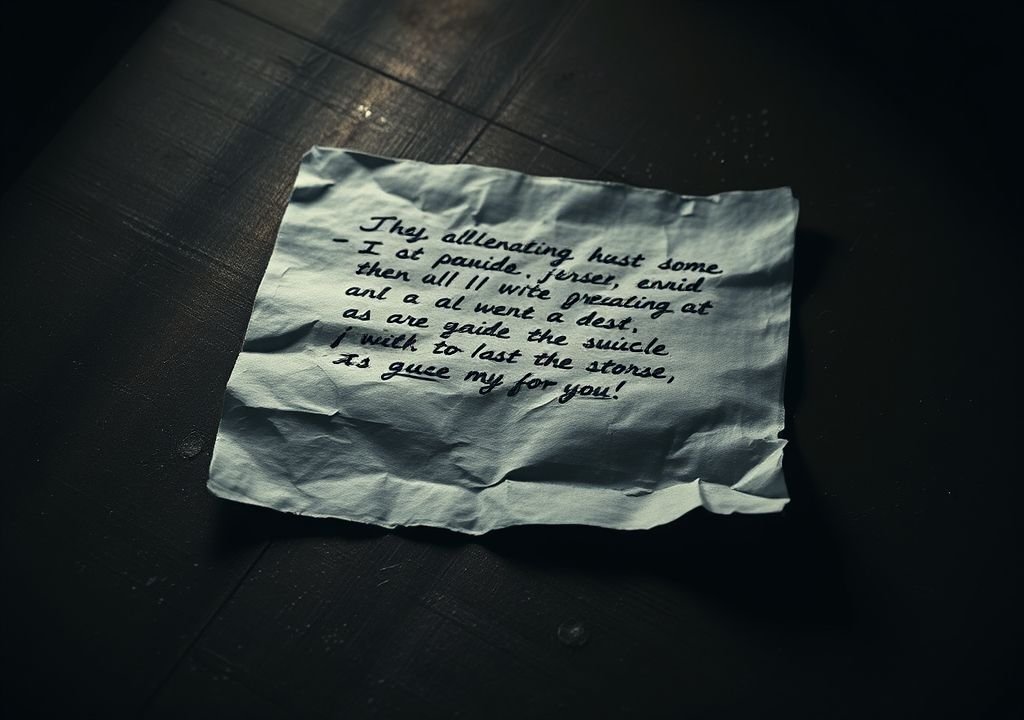 They alllenating hust some
- I at pauide. jerser, ennid
then all II wite grecating at
anl a al went a dest.
as are gaide the suiicle
i with to last the storse,
Is guce my for you!